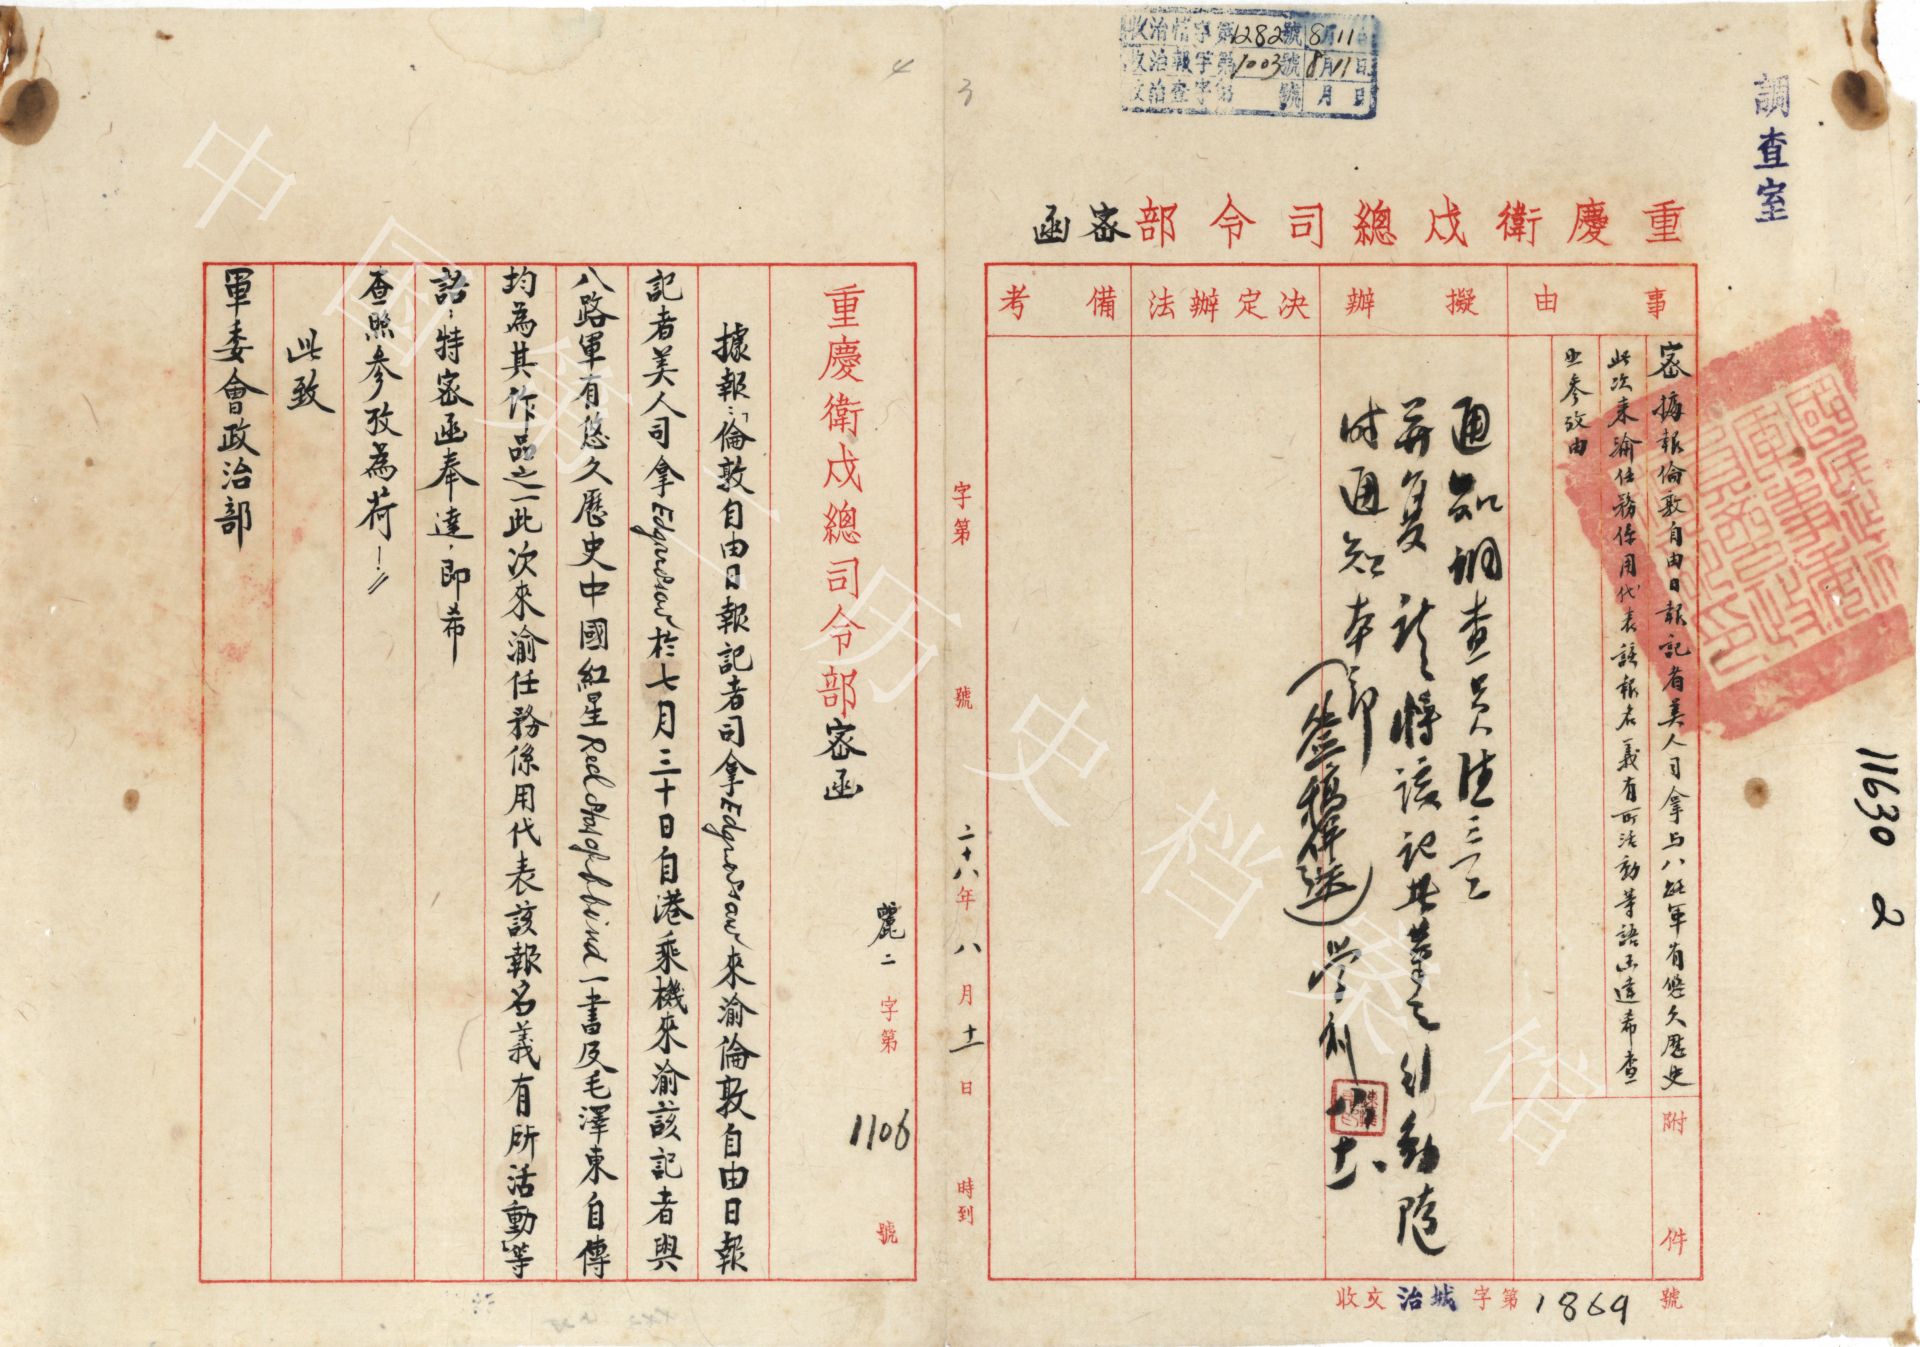 調查室
收治情字第1282號8月11日
收治報字第1003號8月11日
收治查字第 號 月 日
重慶衛戍總司令部密函
事由
擬辦
決定辦法
備考
密據報倫敦自由日報記者美人司拿与八路軍有悠久歷史
此次来渝任務係用代表該報名義有所活動等語函達希查
照參攷由
附件
通知調查員
并复 將該記者之行動隨
时通知本部
收文治城字第1869號
11630
2
3
4
字第 號
二十八年八月十一日 時到
重慶衛戍總司令部密函
麗二字第1106號
據報:「倫敦自由日報記者司拿Edgar Snow來渝倫敦自由日報
記者美人司拿Edgar Snow於七月三十日自港乘機來渝該記者與
八路軍有悠久歷史中國紅星Red Star of China一書及毛澤東自傳
均為其作品之一此次來渝任務係用代表該報名義有所活動」等
語,特密函奉達,即希
查照參攷為荷!
此致
軍委會政治部
中国第二历史档案馆